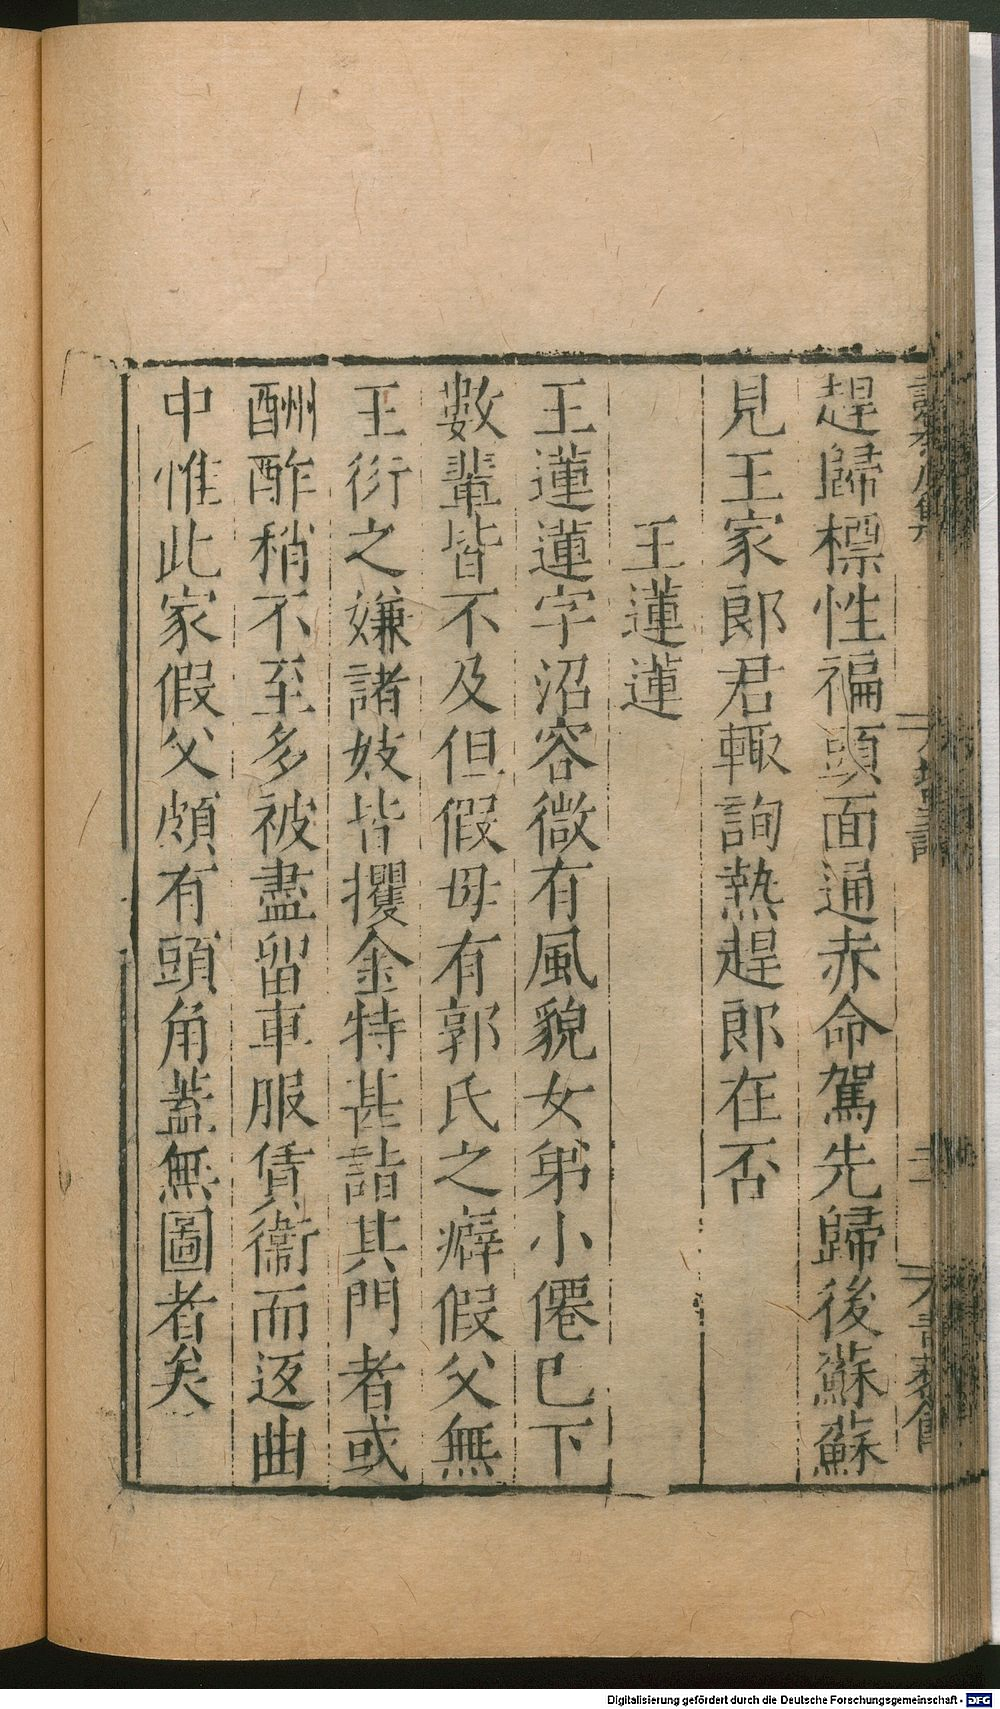 趕歸標性褊頭面通赤命駕先歸後蘇蘇
見王家郎君輒詢熱趕郎在否
王蓮蓮
王蓮蓮字沼容微有風貌女弟小僊已下
數輩皆不及但假母有郭氏之癖假父無
王衍之嫌諸妓皆攫金特甚詣其門者或
酬酢稍不至多被盡留車服賃衞而返曲
中惟此家假父頗有頭角蓋無圖者矣
Digitalisierung gefördert durch die Deutsche Forschungsgemeinschaft - DFG